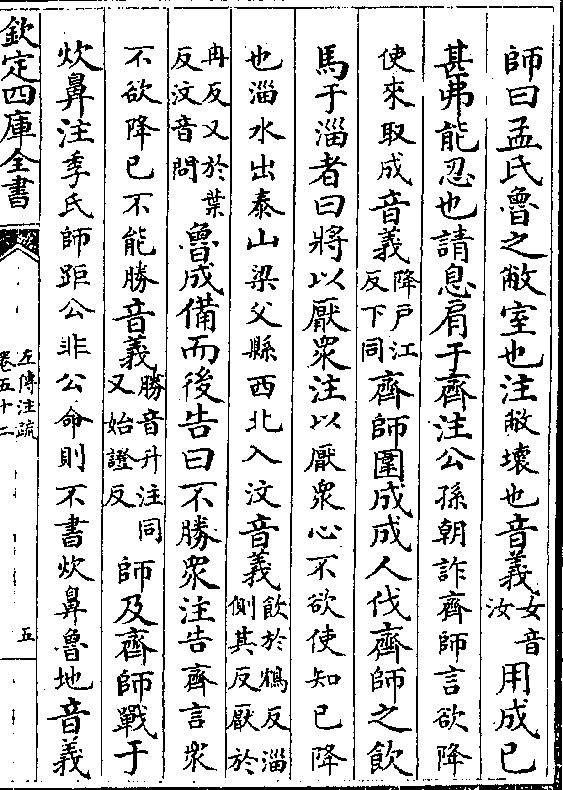 師曰孟氏魯之敝室也注敝壞也音義女音汝用成已
甚弗能忍也請息肩于齊注公孫朝詐齊師言欲降
使來取成音義降戶江反下同齊師圍成成人伐齊師之飲
馬于淄者曰將以厭衆注以厭衆心不欲使知已降
也淄水出泰山梁父縣西北入汶音義飲於鴆反淄側其反厭於
冉反又於葉反汶音問魯成備而後告曰不勝衆注告齊言衆
不欲降已不能勝音義勝音升注同又始證反師及齊師戰于
炊鼻注季氏師距公非公命則不書炊鼻魯地音義
欽定四庫全書
左傳注疏
卷五十二
五